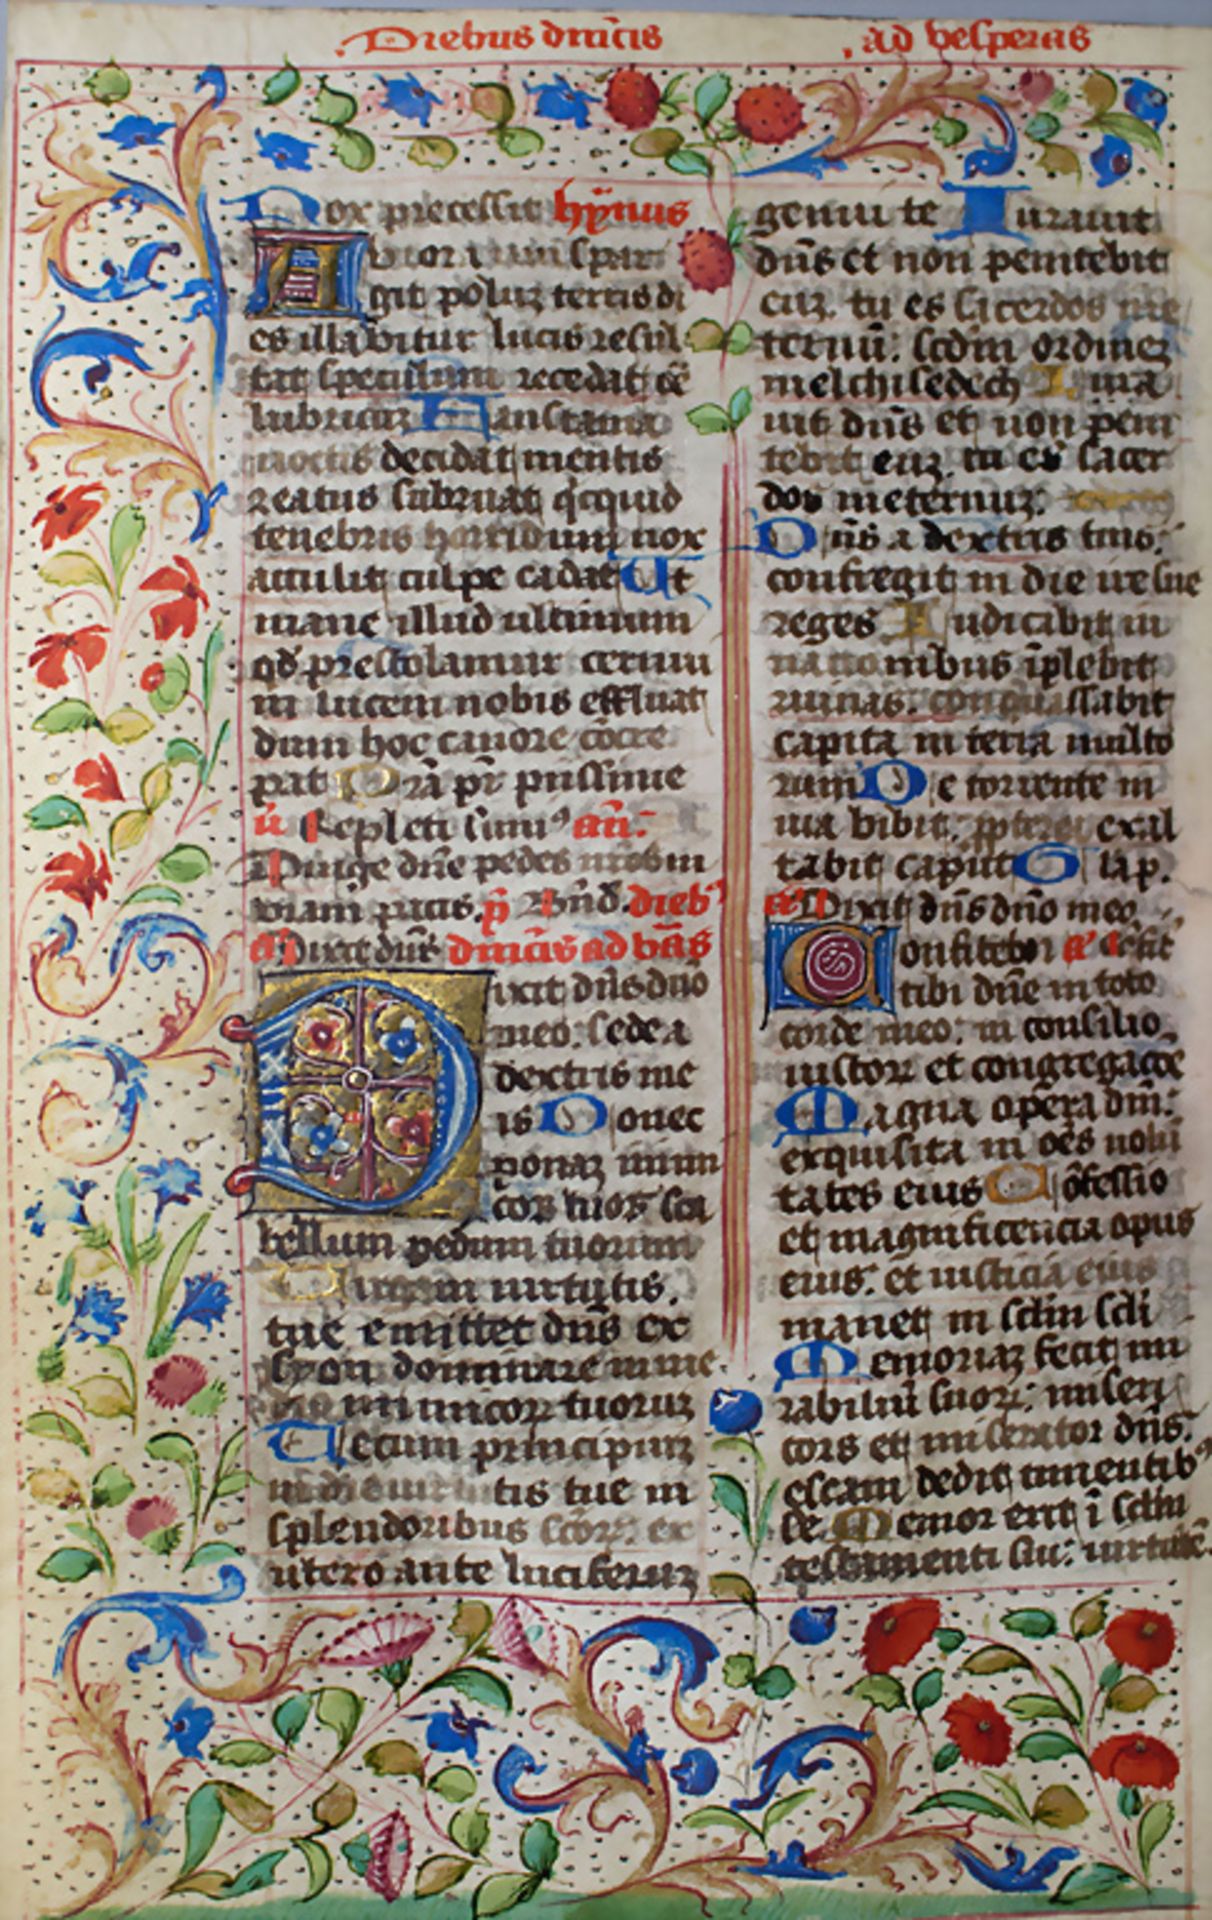 Diebus dnicis ad vesperas
Nox precessit hÿnus
Auror iam spar
git poluz terris di
es illabitur lucis resul
tat speculum recedat oē
lubricuz Fantasma
noctis decidat mentis
reatus subruat qicquid
tenebris horridum nox
attulit culpe cadat Ut
mane illud ultimum
qd prestolamur cernui
in lucem nobis effluat
dum hoc canore cōcre
pat Prā pr pussime
v̄ Repleti sumꝰ an̄:
Dirige dn̄e pedes nr̄os in
viam pacis. p̄ Bn̄d. diebꝰ
an̄ Dixit dūs dnīcis ad vās
Dixit dn̄s dn̄o
meo: sede a
dextris me
is Donec
ponaz inim
cos tuos sca
bellum pedum tuorum
Virgam virtutis
tue emittet dn̄s ex
syon dominare in me
dio inimicoꝝ tuoruz
Tecum principiuz
in die virtutis tue in
splendoribus sc̄oꝝ ex
utero ante luciferuz
genui te Iurauit
dn̄s et non penitebit
euz. tu es sacerdos in e
ternū: scdm ordinez
melchisedech Iura
uit dn̄s et non peni
tebit euz. tu es sacer
dos in eternuz.
Dn̄s a dextris tuis:
confregit in die ire sue
reges Iudicabit in
nationibus īplebit
ruinas. conquassabit
capita in terra multo
rum De torrente in
uia bibit. ꝓpterea exal
tabit caput Glap.
an̄ Dixit dn̄s dn̄o meo
Confitebor
tibi dn̄e in toto
corde meo: in consilio
iustoꝝ et congregacōe
Magna opera dn̄i:
exquisita in oēs uolū
tates eius Cōfessio
et magnificencia opus
eius. et iusticia eius
manet in sclm scli
Memoriaz fecit mi
rabiliū suoꝝ: miseri
cors et miserator dn̄s:
escam dedit timentibꝰ
se. Memor erit ī sclm
testamenti sui: virtutē